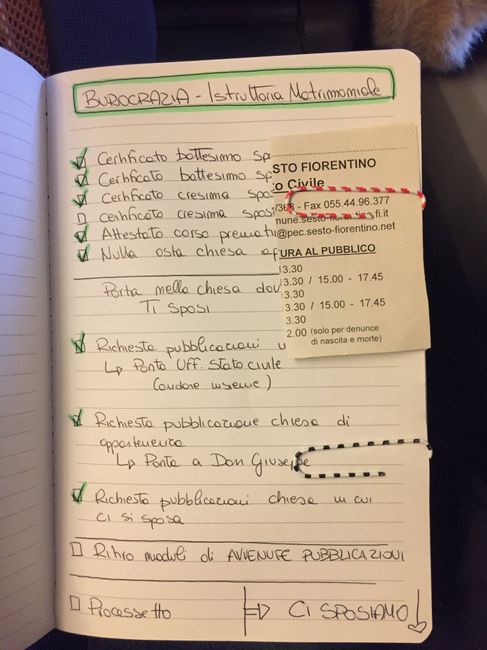 BUROCRAZIA - Istruttoria Matrimoniale
Certificato battesimo
Certificato battesimo
Certificato cresima
certificato cresima
Attestato corso
Nulla osta chiesa
Porta nella chiesa
Ti sposi
Richiesta pubblicazioni
↳ Porta Uff. Stato civile
(andare insieme)
Richiesta pubblicazione chiesa di
appartenenza
↳ Porta a Don Giuseppe
Richiesta pubblicazioni chiesa in cui
ci si sposa
Ritiro moduli di AVVENUTE PUBBLICAZIONI
Processetto
⇒ CI SPOSIAMO
STO FIORENTINO
Civile
- Fax 055.44.96.377
@pec.sesto-fiorentino.net
TURA AL PUBBLICO
13.30
3.30 / 15.00 - 17.45
3.30
3.30 / 15.00 - 17.45
3.30
2.00 (solo per denunce
di nascita e morte)